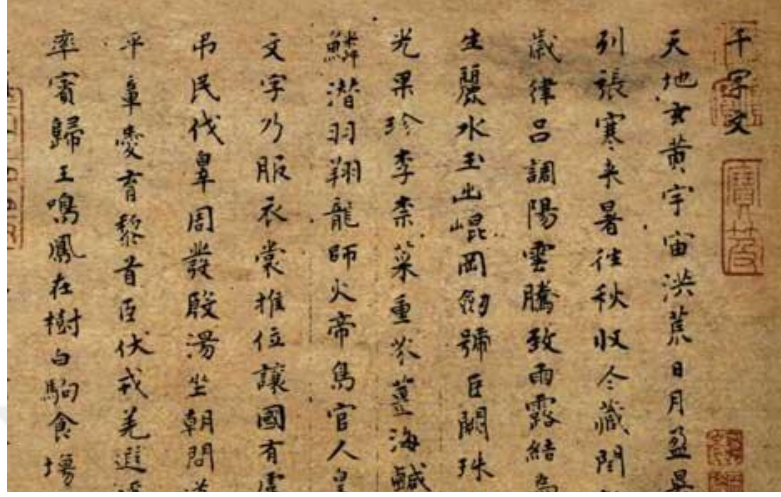 千字文
天地玄黄宇宙洪荒日月盈昃
列張寒来暑往秋収冬藏閏
歲律呂調陽雲騰致雨露結為
生麗水玉出崐岡劒號巨闕珠
光果珍李柰菜重芥薑海鹹
鱗潜羽翔龍師火帝鳥官人皇
文字乃服衣裳推位讓國有虞
吊民伐辠周發殷湯坐朝問道
平章愛育黎首臣伏戎羌遐邇
率賓歸王鳴鳳在樹白駒食場